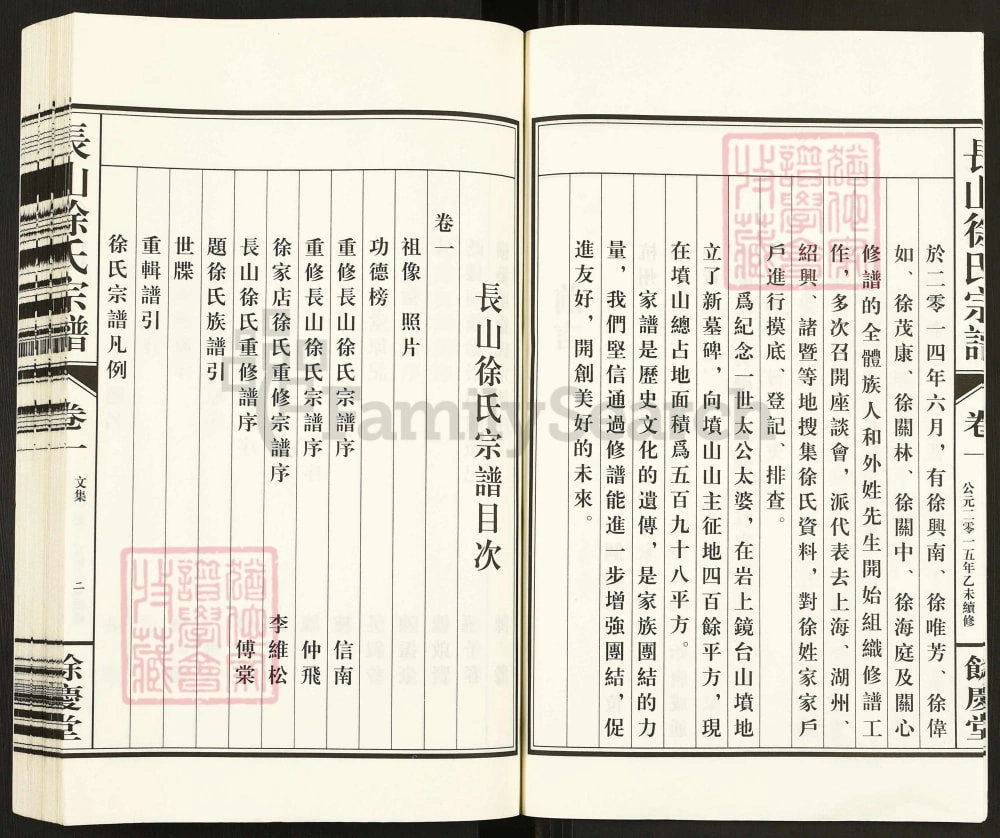 長山徐氏宗譜
卷一
公元二零一五年乙未續修
餘慶堂
於二零一四年六月，有徐興南、徐唯芳、徐偉
如、徐茂康、徐關林、徐關中、徐海庭及關心
修譜的全體族人和外姓先生開始組織修譜工
作，多次召開座談會，派代表去上海、湖州、
紹興、諸暨等地搜集徐氏資料，對徐姓家家戶
戶進行摸底、登記、排查。
爲紀念一世太公太婆，在岩上鏡台山墳地
立了新墓碑，向墳山山主征地四百餘平方，現
在墳山總占地面積爲五百九十八平方。
家譜是歷史文化的遺傳，是家族團結的力
量，我們堅信通過修譜能進一步增強團結，促
進友好，開創美好的未來。
長山徐氏宗譜目次
卷一
祖像 照片
功德榜
重修長山徐氏宗譜序 信南
重修長山徐氏宗譜序 仲飛
徐家店徐氏重修宗譜序 李維松
長山徐氏重修譜序 傅棠
題徐氏族譜引
世牒
重輯譜引
徐氏宗譜凡例
長山徐氏宗譜
卷一
文集
二
餘慶堂
譜學會
收藏
譜學會
收藏
FamilySearch